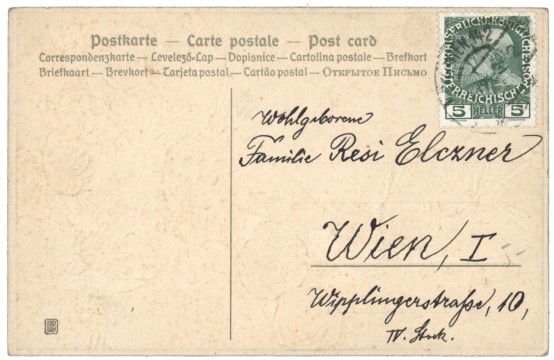 Postkarte – Carte postale – Post card
Correspondenzkarte – Levelező-Lap – Dopisnice – Cartolina postale – Brefkort
Briefkaart – Brevkort – Tarjeta postal – Cartão postal – Открытое Письмо
5 HELLER 5
Wohlgeborene
Familie Resi Elczner
Wien, I
Wipplingerstraße, 10,
IV. Stock.